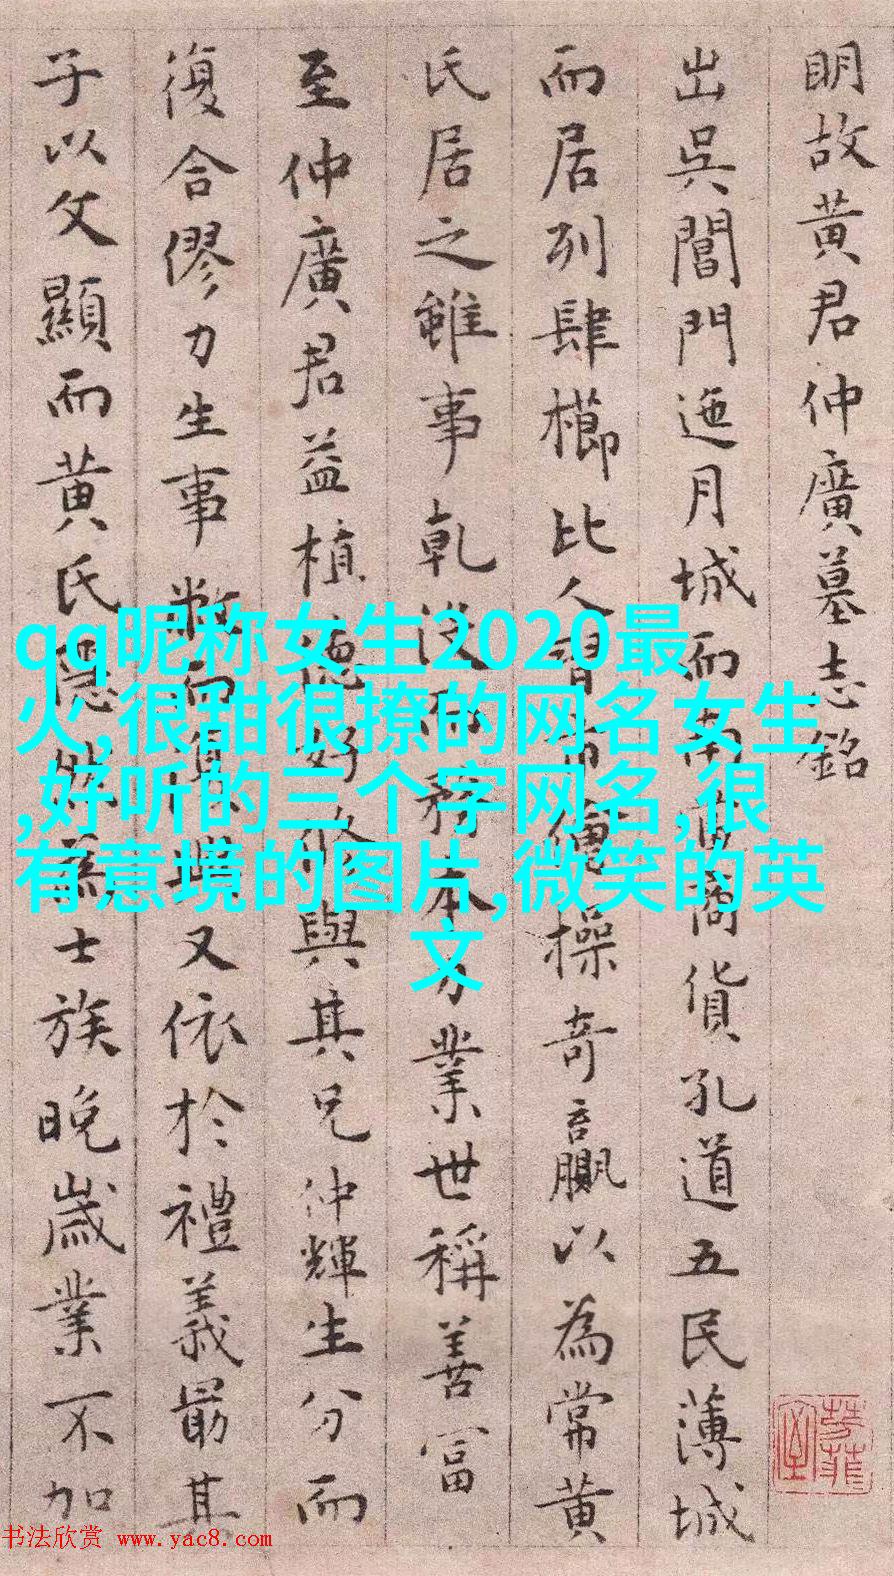 明故黄君仲廣墓志銘
出吳閶門迤月城而南商貨孔道五民薄城
而居列肆櫛比人習市儈操奇贏以為常黄
氏居之雖事乾没而務本力業世稱善富
至仲廣君益植德好脩與其兄仲輝生分而
復合僇力生事又依於禮義最其
子以文顯而黄氏隱然為士族晚歲業不加
qq昵称女生2020最
火,很甜很撩的网名女生
,好听的三个字网名,很
有意境的图片,微笑的英
文
书法欣赏 www.yac8.com